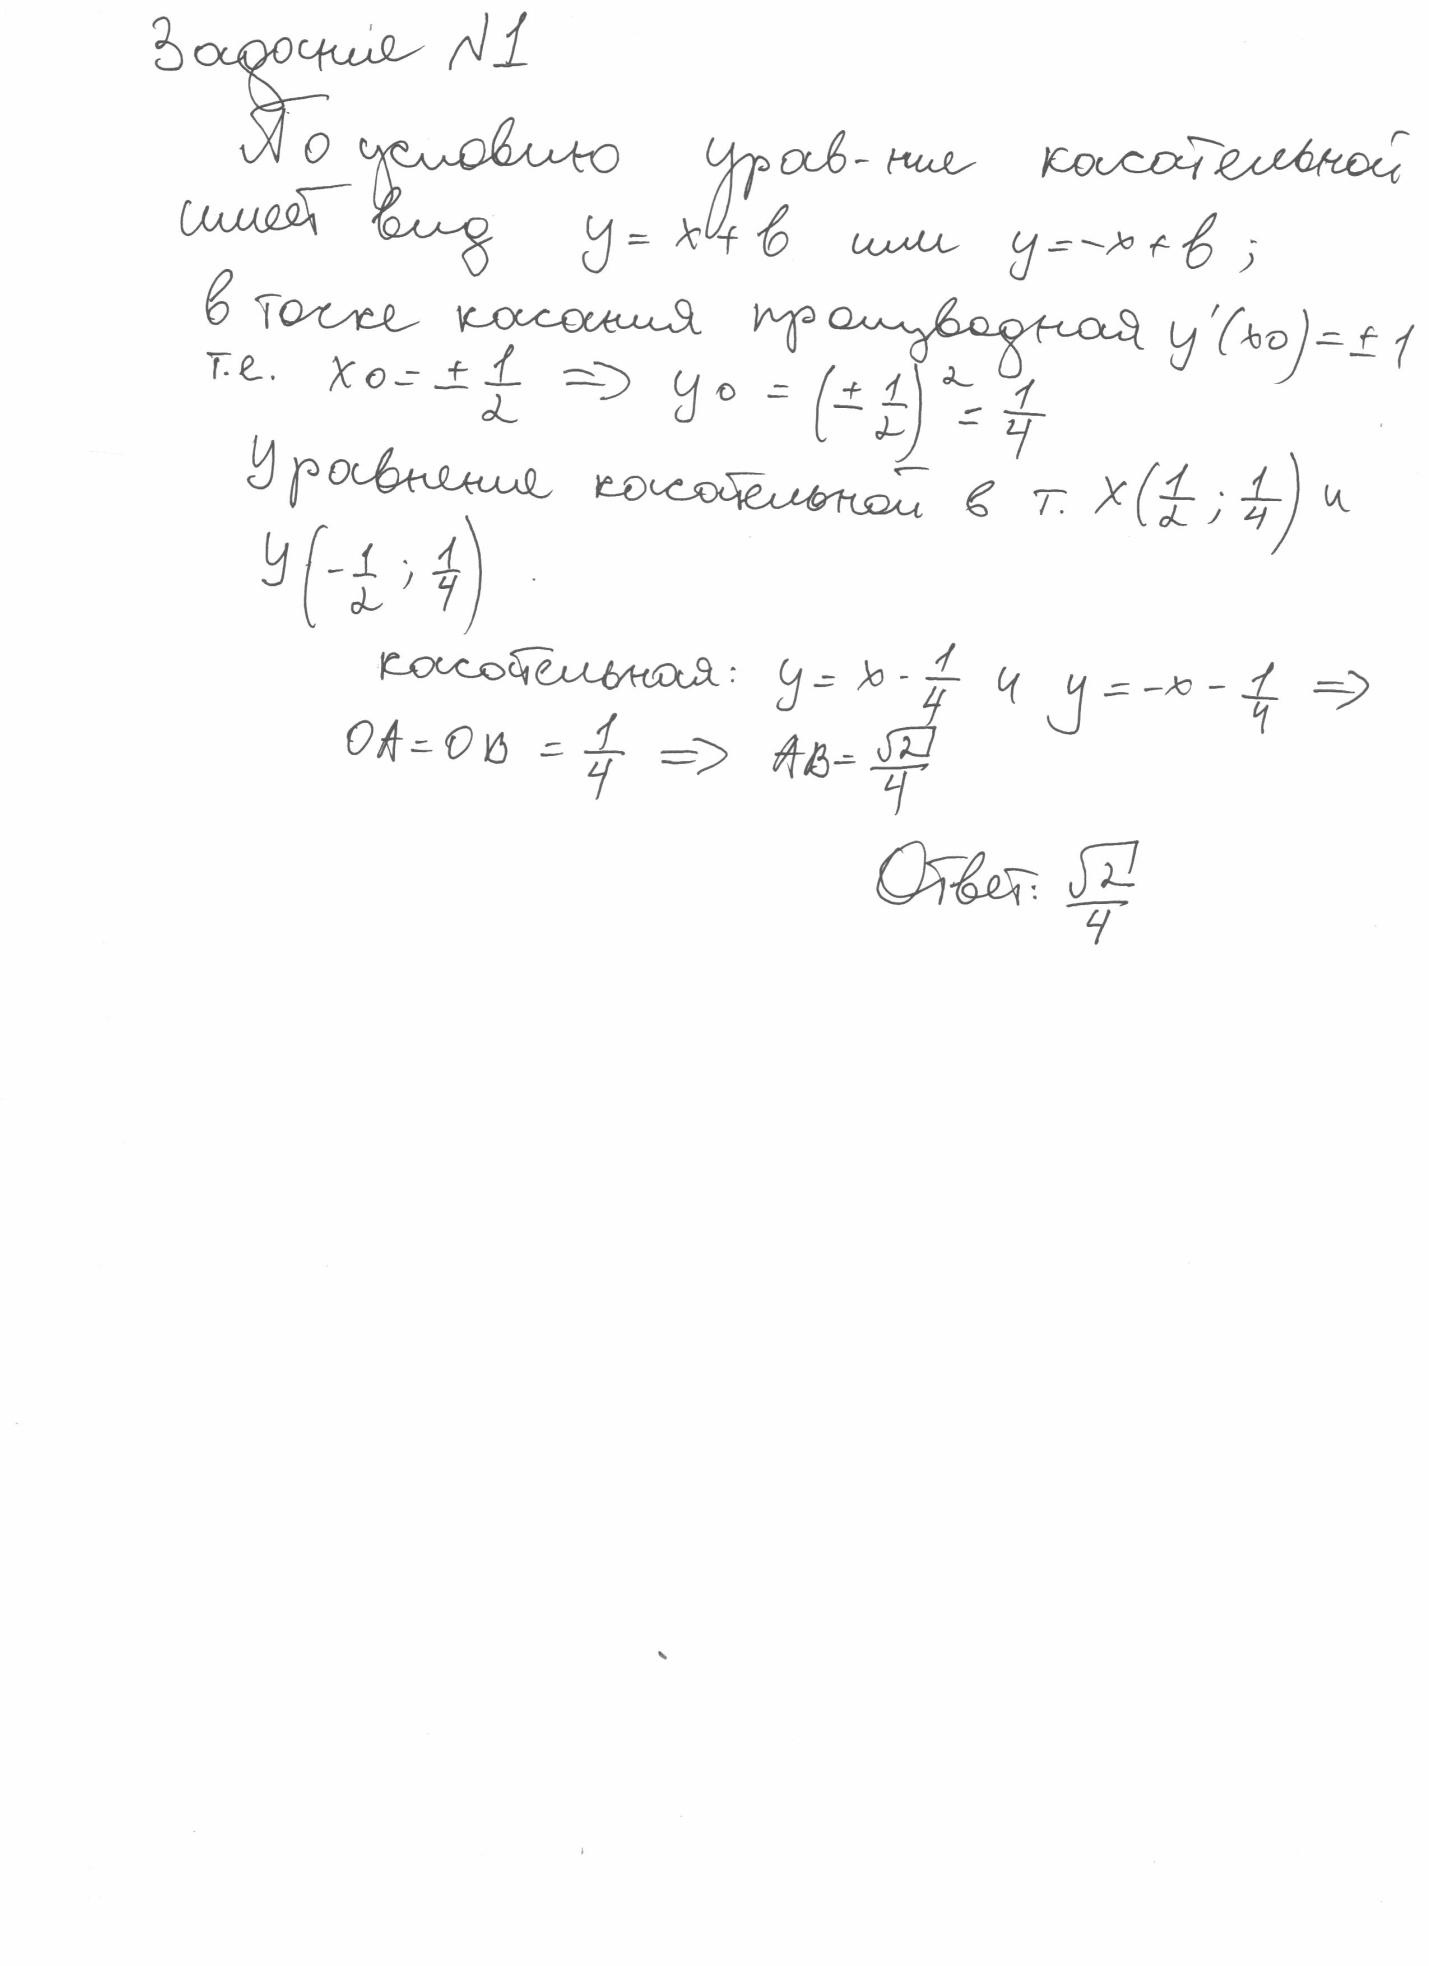 Задание №1
По условию урав-ние касательной
имеет вид y = x + b или y = -x + b ;
в точке касания производная y'(x0) = ± 1
т.е. x0 = ± 1/2 => y0 = (± 1/2)^2 = 1/4
Уравнение касательной в т. X(1/2 ; 1/4) и
Y(-1/2 ; 1/4)
касательная: y = x - 1/4 и y = -x - 1/4 =>
OA = OB = 1/4 => AB = √2/4
Ответ: √2/4